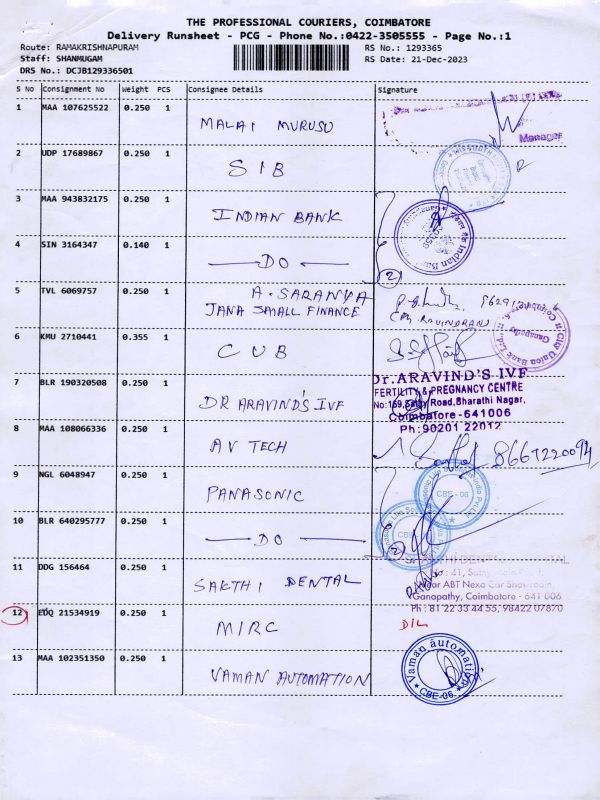 THE PROFESSIONAL COURIERS, COIMBATORE
Delivery Runsheet - PCG - Phone No.:0422-3505555 - Page No.:1
Route: RAMAKRISHNAPURAM RS No.: 1293365
Staff: SHANMUGAM RS Date: 21-Dec-2023
DRS No.: DCJB129336501
S No Consignment No Weight PCS Consignee Details Signature
1 MAA 107625522 0.250 1 MALAI MURUSU
Manager
2 UDP 17689867 0.250 1 SIB
3 MAA 943832175 0.250 1 INDIAN BANK
4 SIN 3164347 0.140 1 DO
2
5 TVL 6069757 0.250 1 A. SARANYA
JANA SMALL FINANCE
RAVINDRAN
City Union Bank Ltd.
Ganapathy
6 KMU 2710441 0.355 1 CUB
7 BLR 190320508 0.250 1 DR ARAVIND'S IVF
Dr.ARAVIND'S IVF
FERTILITY & PREGNANCY CENTRE
No:169, Sathy Road, Bharathi Nagar,
Coimbatore-641006
Ph:90201 22012
8 MAA 108066336 0.250 1 AV TECH
8667220094
9 NGL 6048947 0.250 1 PANASONIC
CBE - 06
10 BLR 640295777 0.250 1 DO
CBE - 06
2
11 DDG 156464 0.250 1 SAKTHI DENTAL
No : 41,
Near ABT Nexa Car Showroom,
Ganapathy, Coimbatore - 641 006
Ph : 81 22 33 44 55, 98422 07870
12 EDQ 21534919 0.250 1 MIRC
D/L
13 MAA 102351350 0.250 1 VAMAN AUTOMATION
Vaman automation
CBE-06